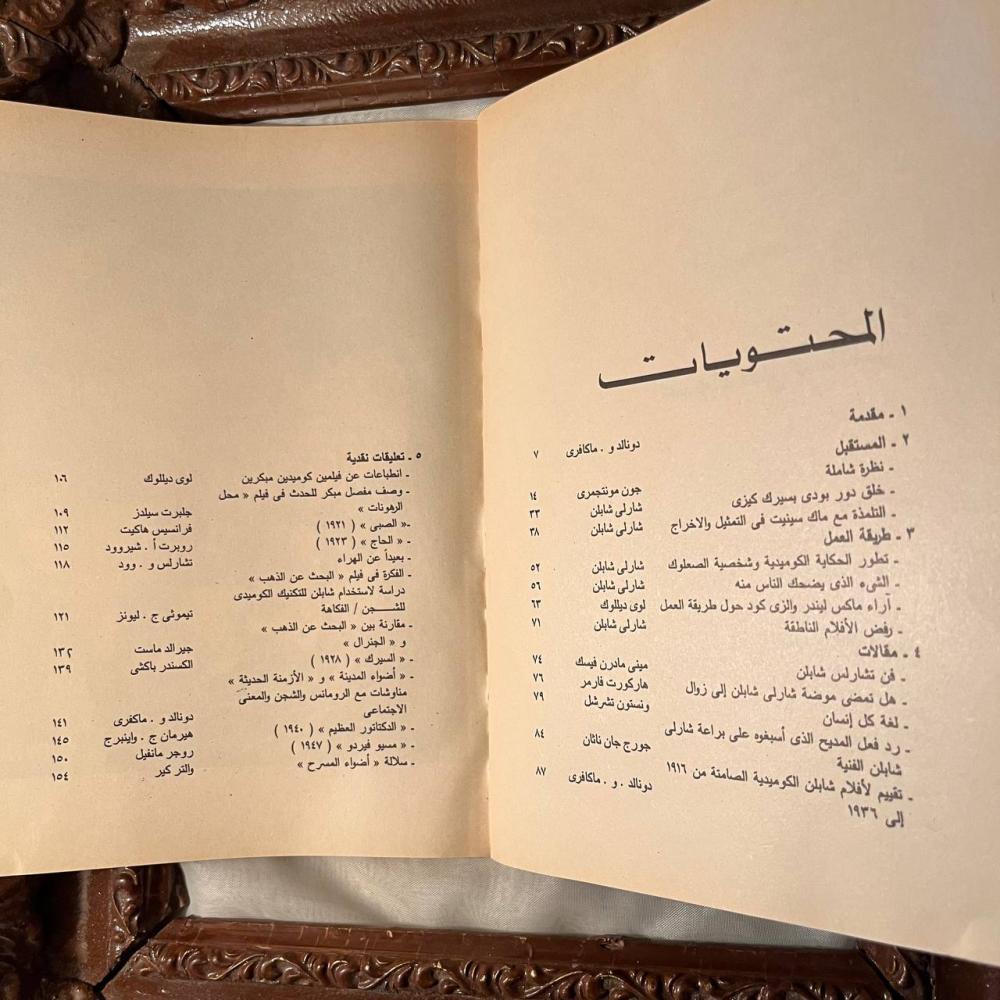 المحتويات
١ ـ مقدمة
٢ ـ المستقبل دونالد و . ماكافرى ٧
ـ نظرة شاملة
ـ خلق دور بودى بسيرك كيزى جون مونتجمرى ١٤
ـ التلمذة مع ماك سينيت فى التمثيل والاخراج شارلى شابلن ٣٣
٣ ـ طريقة العمل شارلى شابلن ٣٨
ـ تطور الحكاية الكوميدية وشخصية الصعلوك
ـ الشىء الذى يضحك الناس منه شارلى شابلن ٥٢
ـ آراء ماكس ليندر والزى كود حول طريقة العمل شارلى شابلن ٥٦
ـ رفض الأفلام الناطقة لوى ديللوك ٦٣
٤ ـ مقالات شارلى شابلن ٧١
ـ فن تشارلس شابلن
ـ هل تمضى موضة شارلى شابلن إلى زوال مينى مادرن فيسك ٧٤
ـ لغة كل إنسان هاركورت فارمر ٧٦
ـ رد فعل المديح الذى أسبغوه على براعة شارلى ونستون تشرشل ٧٩
شابلن الفنية جورج جان ناثان ٨٤
ـ تقييم لأفلام شابلن الكوميدية الصامتة من ١٩١٦
إلى ١٩٣٦ دونالد . و . ماكافرى ٨٧
٥ ـ تعليقات نقدية
ـ انطباعات عن فيلمين كوميدين مبكرين لوى ديللوك ١٠٦
ـ وصف مفصل مبكر للحدث فى فيلم « محل
الرهونات » جلبرت سيلدز ١٠٩
ـ« الصبى » ( ١٩٢١ ) فرانسيس هاكيت ١١٢
ـ « الحاج » ( ١٩٢٣ ) روبرت أ . شيروود ١١٥
ـ بعيداً عن الهراء تشارلس و . وود ١١٨
ـ الفكرة فى فيلم « البحث عن الذهب »
دراسة لاستخدام شابلن للتكنيك الكوميدى
للشجن / الفكاهة تيموثى ج . ليونز ١٢١
ـ مقارنة بين « البحث عن الذهب »
و « الجنرال » جيرالد ماست ١٣٢
ـ « السيرك » ( ١٩٢٨ ) الكسندر باكشى ١٣٩
ـ « أضواء المدينة » و « الأزمنة الحديثة »
مناوشات مع الرومانس والشجن والمعنى
الاجتماعى دونالد و . ماكفرى ١٤١
ـ « الدكتاتور العظيم » ( ١٩٤٠ ) هيرمان ج . واينبرج ١٤٥
ـ « مسيو فيردو » ( ١٩٤٧ ) روجر مانفيل ١٥٠
ـ سلالة « أضواء المسرح » والتر كير ١٥٤